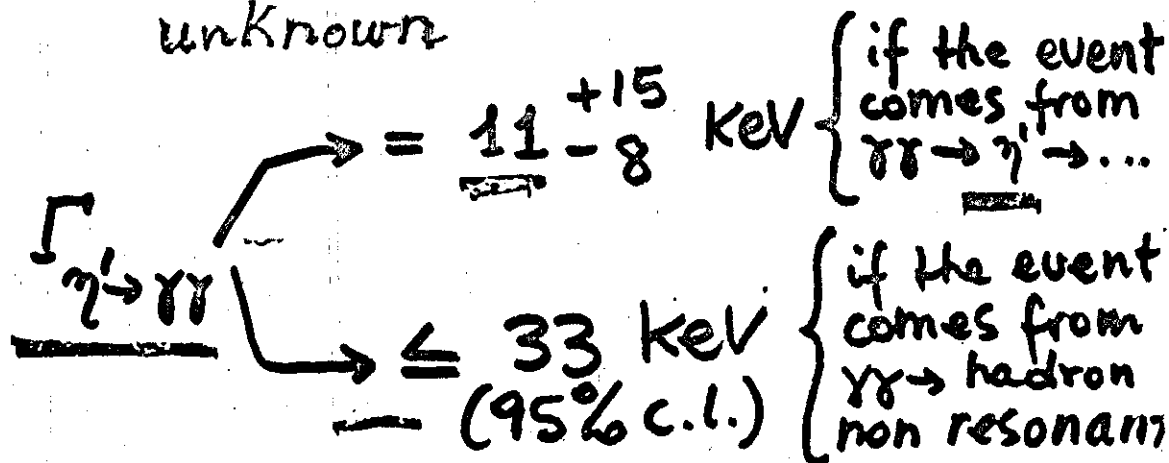 unknown
= 11 +15 -8 KeV { if the event
comes from
γγ → η' → ...
Γ η'→γγ
≤ 33 KeV { if the event
(95% c.l.) comes from
γγ → hadron
non resonan